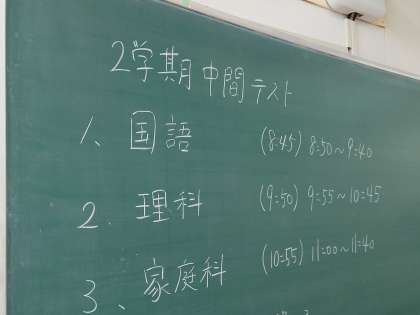 2学期中間テスト
1、国語 (8:45) 8:50~9:40
2. 理科 (9:50) 9:55~10:45
3、家庭科 (10:55) 11:00~11:40